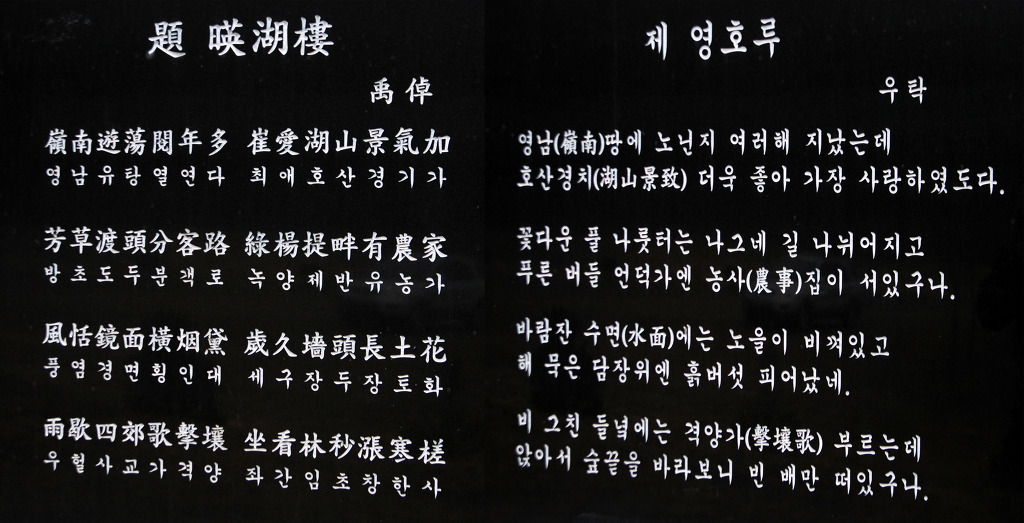 題 暎湖樓
禹倬
嶺南遊蕩閱年多 崔愛湖山景氣加
영남유탕열연다 최애호산경기가
芳草渡頭分客路 綠楊提畔有農家
방초도두분객로 녹양제반유농가
風恬鏡面橫烟黛 歲久墻頭長土花
풍염경면횡인대 세구장두장토화
雨歇四郊歌擊壤 坐看林秒漲寒槎
우헐사교가격양 좌간임초창한사
제 영호루
우탁
영남(嶺南)땅에 노닌지 여러해 지났는데
호산경치(湖山景致) 더욱 좋아 가장 사랑하였도다.
꽃다운 풀 나룻터는 나그네 길 나뉘어지고
푸른 버들 언덕가엔 농사(農事)집이 서있구나.
바람잔 수면(水面)에는 노을이 비껴있고
해 묵은 담장위엔 흙버섯 피어났네.
비 그친 들녘에는 격양가(擊壤歌) 부르는데
앉아서 숲끝을 바라보니 빈 배만 떠있구나.